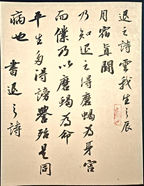 退之詩云我生之辰
月宿直斗
乃知退之得磨蝎為身宮
而僕乃以磨蝎為命
平生多得謗譽殆是同
病也 書退之詩